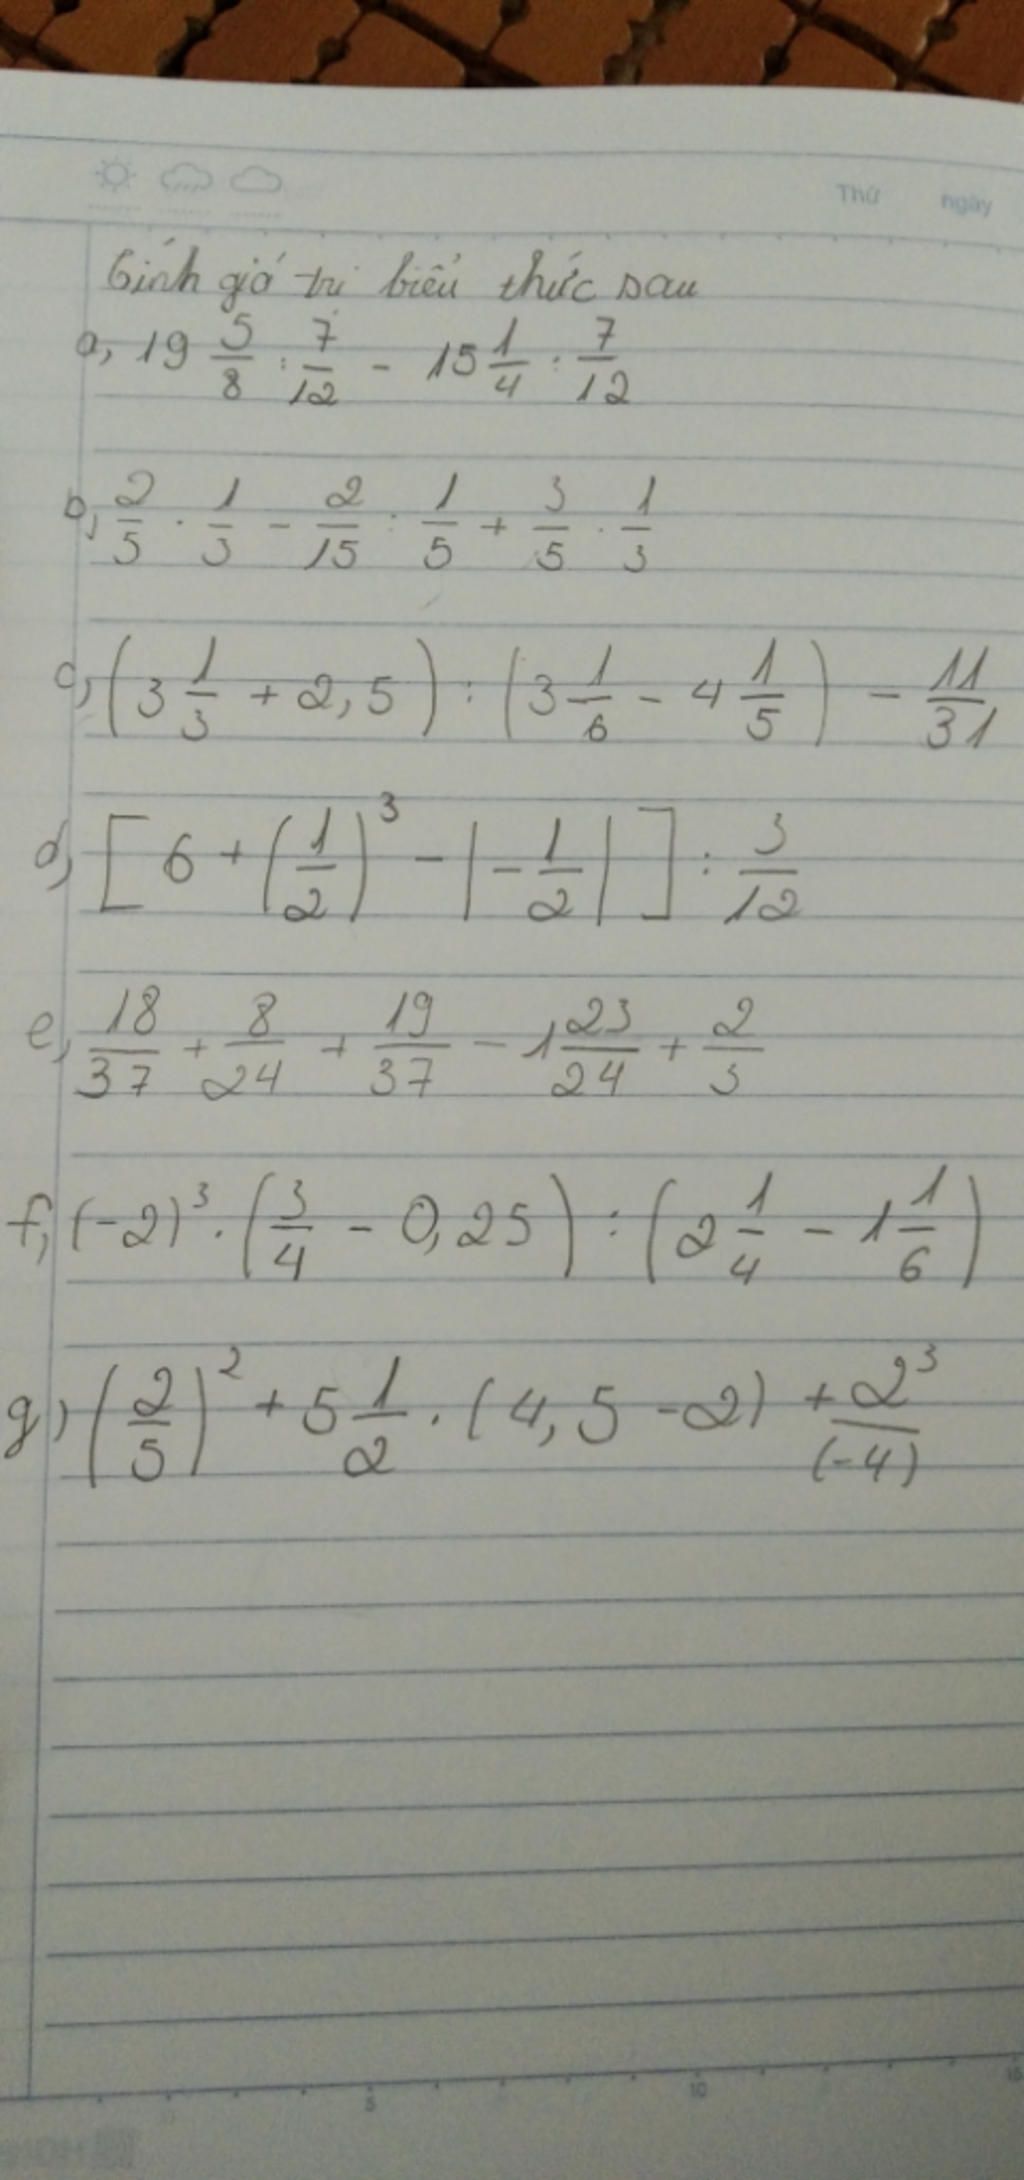 Thứ ngày
Tính giá trị biểu thức sau
a, 19 5/8 : 7/12 - 15 1/4 : 7/12
b, 2/5 . 1/3 - 2/15 : 1/5 + 3/5 . 1/3
c, (3 1/3 + 2,5) : (3 1/6 - 4 1/5) - 11/31
d, [6 + (1/2)³ - |-1/2|] : 3/12
e, 18/37 + 8/24 + 19/37 - 1 23/24 + 2/3
f, (-2)³ . (3/4 - 0,25) : (2 1/4 - 1 1/6)
g, (2/5)² + 5 1/2 . (4,5 - 2) + 2³/(-4)
5 10 15